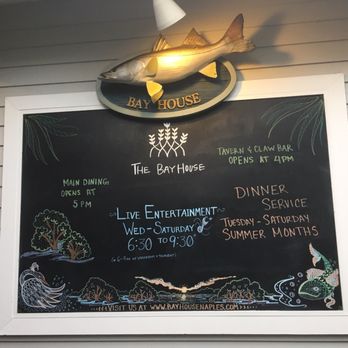 BAY HOUSE
THE BAYHOUSE
TAVERN & CLAW BAR
OPENS AT 4PM
MAIN DINING
OPENS AT
5 PM
LIVE ENTERTAINMENT
WED - SATURDAY
6:30 TO 9:30
DINNER
SERVICE
TUESDAY - SATURDAY
SUMMER MONTHS
VISIT US AT WWW.BAYHOUSENAPLES.COM